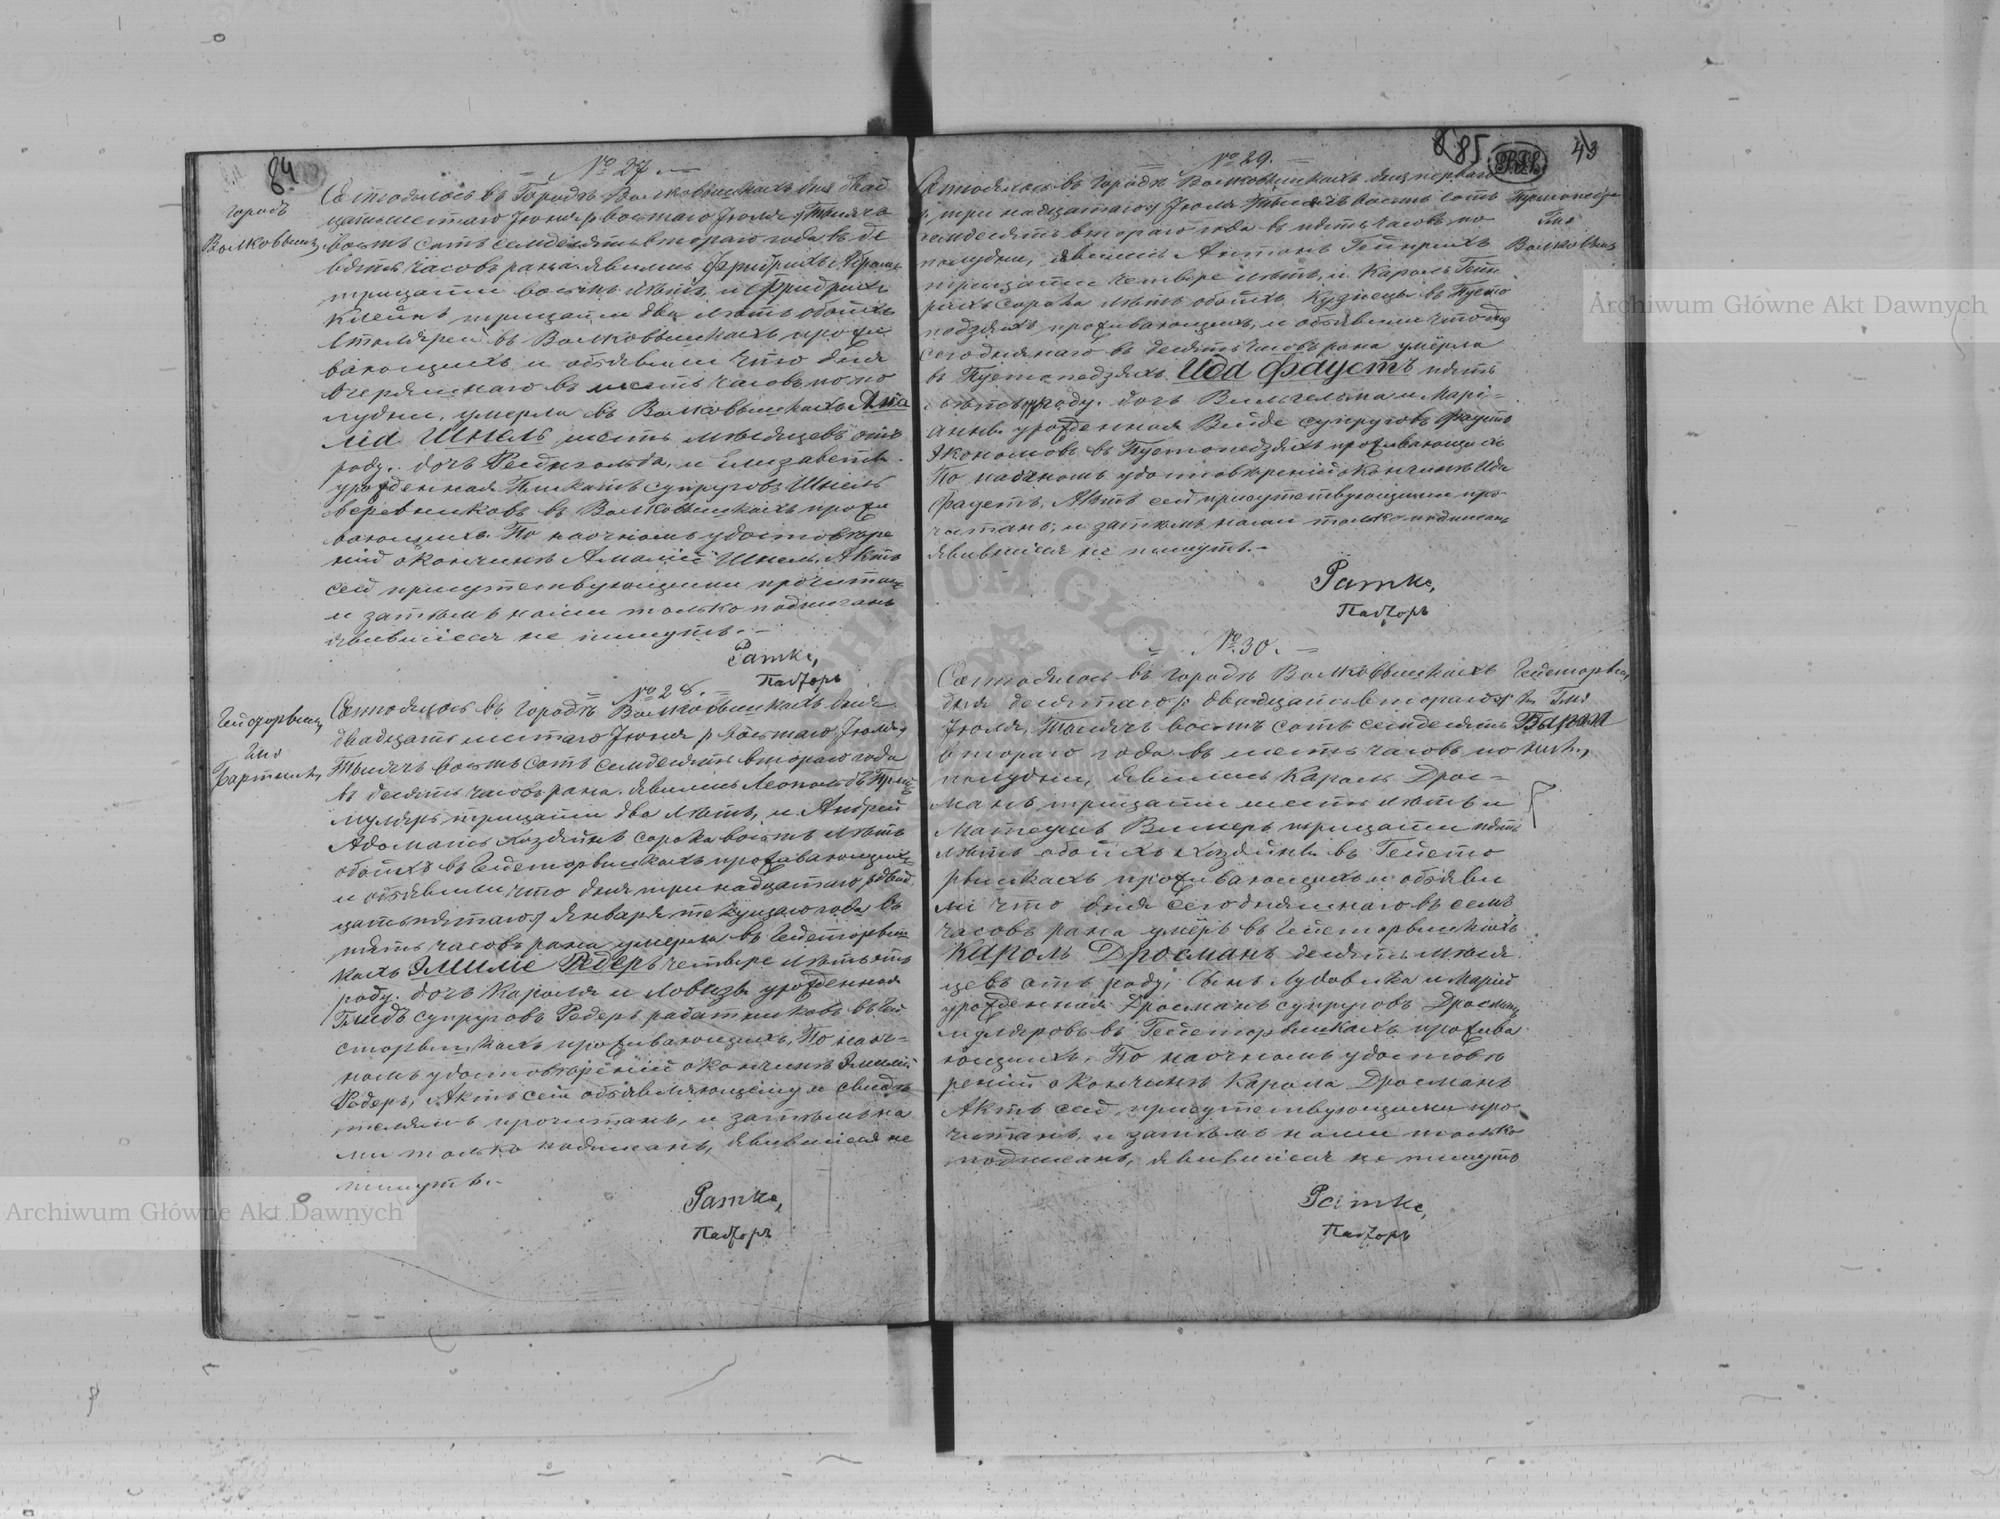 84
№ 27.
городъ
Волковышки
Состоялось въ Городѣ Волковышкахъ дня двад
цать шестаго Іюня / восьмаго Іюля / Тысяча
восемь сотъ семдесять втораго года въ де
вять часовъ рана. явились Фридрихъ Абрамъ
трицати восемь лѣтъ, и Фридрихъ
Клейнъ трицати два лѣтъ обоихъ
столярей въ Волковышкахъ прожи
вающихъ и объявили что дня
вчеряшнаго въ шесть часовъ по по
лудни, умерла въ Волковышкахъ Ама
лія Шнель шесть мѣсяцевъ отъ
роду. дочь Рейнгольда, и Елизаветы
урожденная супруговъ Шнель
веревниковъ въ Волковышкахъ прожи
вающихъ. По наочномъ удостовѣре
ніи о кончинѣ Амаліи Шнель, Актъ
сей присутствующими прочитанъ
и затѣмъ нами только подписанъ
явившіеся не пишутъ.
Ратке,
Пасторъ
№ 28.
Гейсторвишки
Гмі
Бартники
Состоялось въ городѣ Волковышкахъ дня
двадцать шестаго Іюня / восьмаго Іюля /
Тысячъ восемь сотъ семдесять втораго года
въ десять часовъ рана. явились Леопольдъ
муляръ трицати два лѣтъ, и Андрей
Адоматъ хозяинъ сорока восемь лѣтъ
обоихъ въ Гейсторвишкахъ проживающихъ
и объявили что дня тринадцатаго / двад
цать пятаго / Января текущаго года въ
пять часовъ рана умерла въ Гейсторвиш
кахъ Эмилія Редеръ четыре лѣтъ отъ
роду. дочь Кароля и Ловизы урожденная
супруговъ Редеръ работниковъ въ Гей
сторвишкахъ проживающихъ, По наоч-
номъ удостовѣреніи о кончинѣ Эмиліи
Редеръ, Актъ сей объявляющему и свидѣ
телямъ прочитанъ, и затѣмъ на
ми только подписанъ, явившіеся не
пишутъ.
Ратке,
Пасторъ
85
43
№ 29.
Волковышки
Состоялось въ городѣ Волковышкахъ дня перваго
/ тринадцатаго / Іюля Тысячъ восемь сотъ
семдесять втораго года въ пять часовъ по
полудни, явились Антонъ Гейнрихъ
трицати четыре лѣтъ, и Кароль Гейн
рихъ сорока лѣтъ обоихъ Кузнецы въ Пусто
подзяхъ проживающихъ, и объявили что дня
сегодняшнаго въ десять часовъ рана умёрла
въ Пустоподзяхъ Ида Фаустъ пять
лѣтъ отъ роду. дочь Вильгельма и Марі-
анны урожденная Вейде супруговъ Фаустъ
Экономовъ въ Пустоподзяхъ проживающихъ
По наочномъ удостовѣреніи о кончинѣ Ида
Фаустъ, Актъ сей присутствующими про
читанъ, и затѣмъ нами только подписанъ
явившіеся не пишутъ.-
Ратке,
Пасторъ
№ 30.
Гмі
Состоялось въ городѣ Волковышкахъ
дня десятаго / двадцать втораго /
Іюля, Тысячъ восемь сотъ семдесять
втораго года въ шесть часовъ по
полудни, явились Кароль Дрос-
манъ трицати шесть лѣтъ и
Матеушъ Вимеръ трицати пять
лѣтъ обоихъ хозяйны въ Гейсто
рвишкахъ проживающихъ и объяви
ли что дня сегодняшнаго въ семь
часовъ рана умёръ въ Гейсторвишкахъ
Кароль Дросманъ десять мѣся
цевъ отъ роду, Сынъ Лудовика и Маріи
урожденная Дросманъ супруговъ Дросманъ
муляровъ въ Гейсторвишкахъ прожива
ющихъ. По наочномъ удостовѣ
реніи о кончинѣ Кароля Дросманъ
Актъ сей, присутствующими про
читанъ, и затѣмъ нами только
подписанъ, явившіеся не пишутъ
Ратке,
Пасторъ
Archiwum Główne Akt Dawnych
Archiwum Główne Akt Dawnych